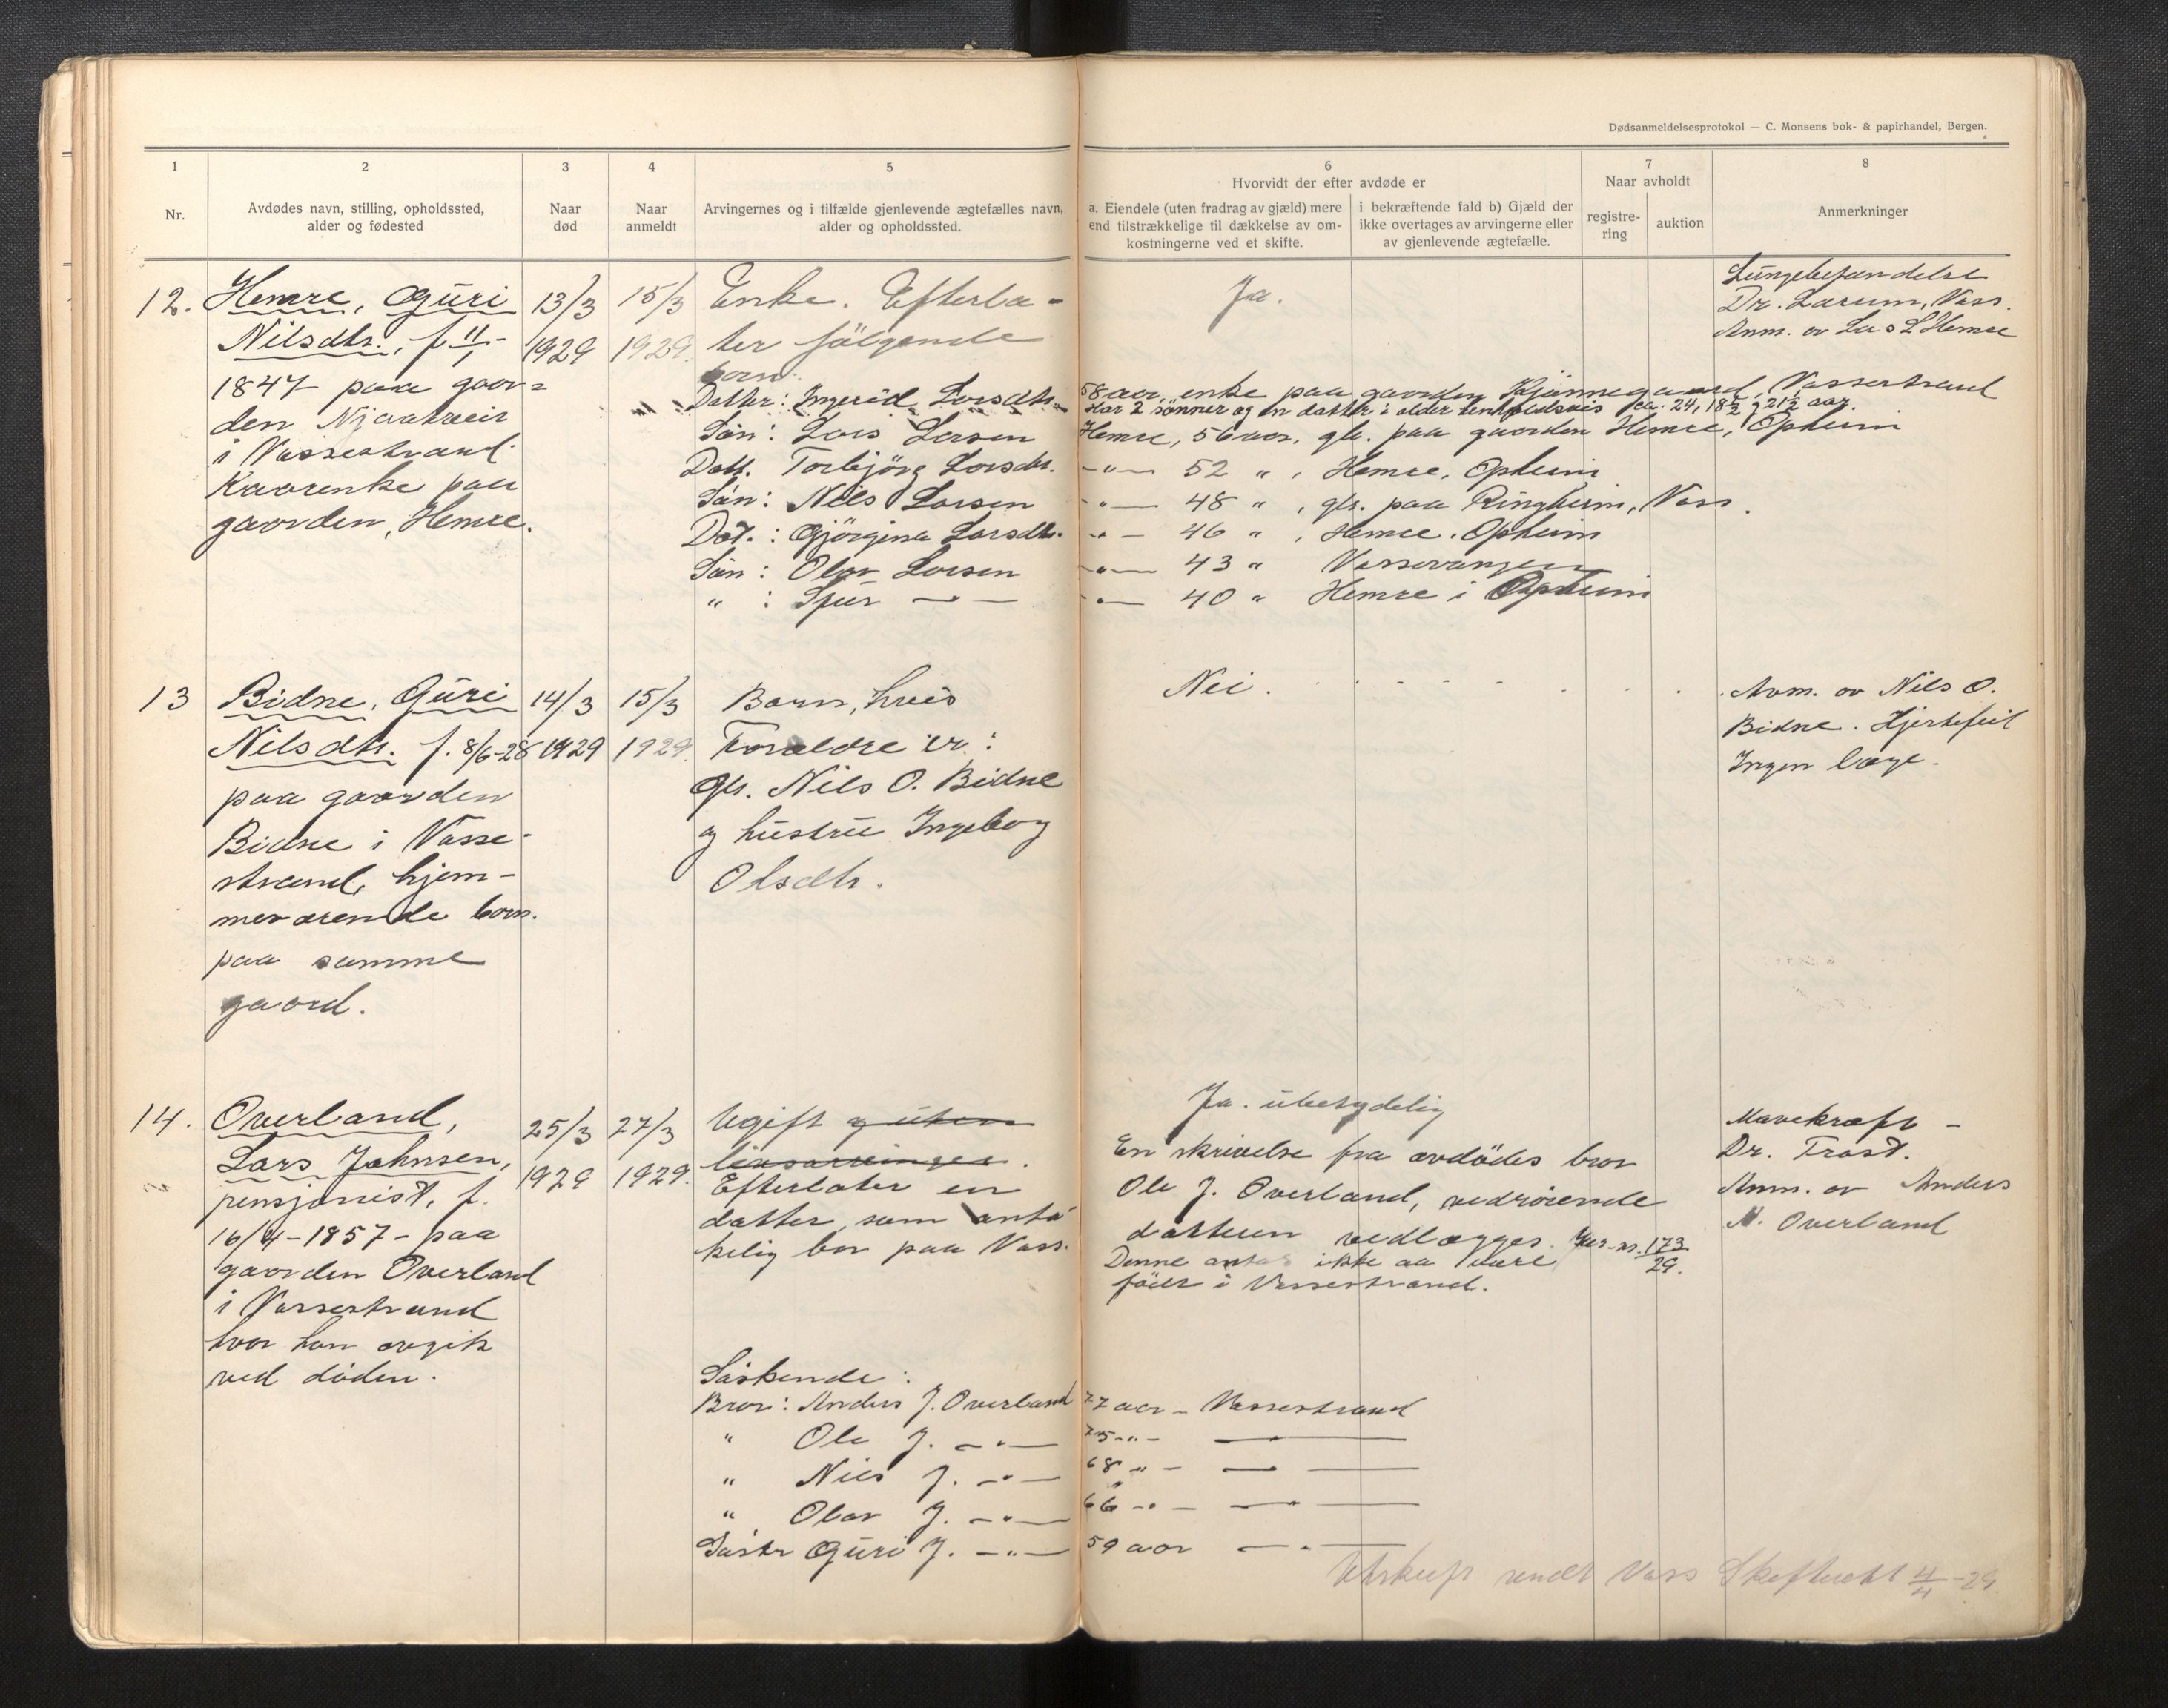 Dødsanmeldelsesprotokol — C. Monsens bok- & papirhandel, Bergen.
1 2 3 4 5 6 7 8
Nr.
Avdødes navn, stilling, opholdssted,
alder og fødested
Naar
død
Naar
anmeldt
Arvingernes og i tilfælde gjenlevende ægtefælles navn,
alder og opholdssted.
Hvorvidt der efter avdøde er
a. Eiendele (uten fradrag av gjæld) mere
end tilstrækkelige til dækkelse av om-
kostningerne ved et skifte.
i bekræftende fald b) Gjæld der
ikke overtages av arvingerne eller
av gjenlevende ægtefælle.
Naar avholdt
registre-
ring
auktion
Anmerkninger
12.
Hemre, Guri
Nilsdtr., f 11/1-
1847 paa gaar=
den Njaatveit
i Vossestrand.
Kaarenke paa
gaarden, Hemre.
13/3
1929
15/3
1929.
Enke. Efterla-
ter følgende
barn.
Datter: Ingerid Larsdtr. 58 aar, enke paa gaarden Kjønnegaard, Vossestrand
Har 2 sønner og en datter i alder henholdsvis ca. 24, 18½ og 21½ aar.
Søn: Lars Larsen Hemre, 56 aar, gbr. paa gaarden Hemre, Opheim
Datt. Torbjørg Larsdtr. -"- 52 " , Hemre, Opheim
Søn: Nils Larsen -"- 48 " , gbr. paa Ringheim, Voss.
Dat.: Gjørgina Larsdtr. -"- 46 " , Hemre, Opheim
Søn: Olav Larsen -"- 43 " Vossevangen
" : Sjur -"- -"- 40 " Hemre i Opheim
Ja.
Lungebetændelse
Dr. Larum, Voss.
Anm. av Lars L Hemre
13
Bidne, Guri
Nilsdtr. f. 8/6-28
paa gaarden
Bidne i Vosse-
strand, hjem-
meværende barn
paa samme
gaard.
14/3
1929
15/3
1929.
Barn, hvis
Forældre er:
Gbr. Nils O. Bidne
og hustru Ingeborg
Olsdtr.
Nei.
Anm. av Nils O.
Bidne. Hjertefeil
Ingen læge.
14.
Overland,
Lars Johnsen,
pensjonist, f.
16/4-1857 - paa
gaarden Overland
i Vossestrand
hvor han avgik
ved døden.
25/3
1929
27/3
1929.
Ugift og uten
livsarvinger.
Efterlater en
datter, som anta-
kelig bor paa Voss.
Ja. ubetydelig
En skrivelse fra avdødes bror
Ole J. Overland, vedrørende
datteren vedlægges. Jur-nr. 173/29.
Denne antas ikke aa være
født i Vossestrand.
Mavekræft -
Dr. Trast.
Anm. av Anders
N. Overland
Søskende:
Bror: Anders J. Overland 77 aar - Vossestrand
" Ole J. -"- 75 -"- -"-
" Nils J. -"- 68 -"- -"-
" Olav J. -"- 66 -"- -"-
Søster Guri J. -"- 59 aar -"-
Utskrift sendt Voss Skifteret 4/4-29.